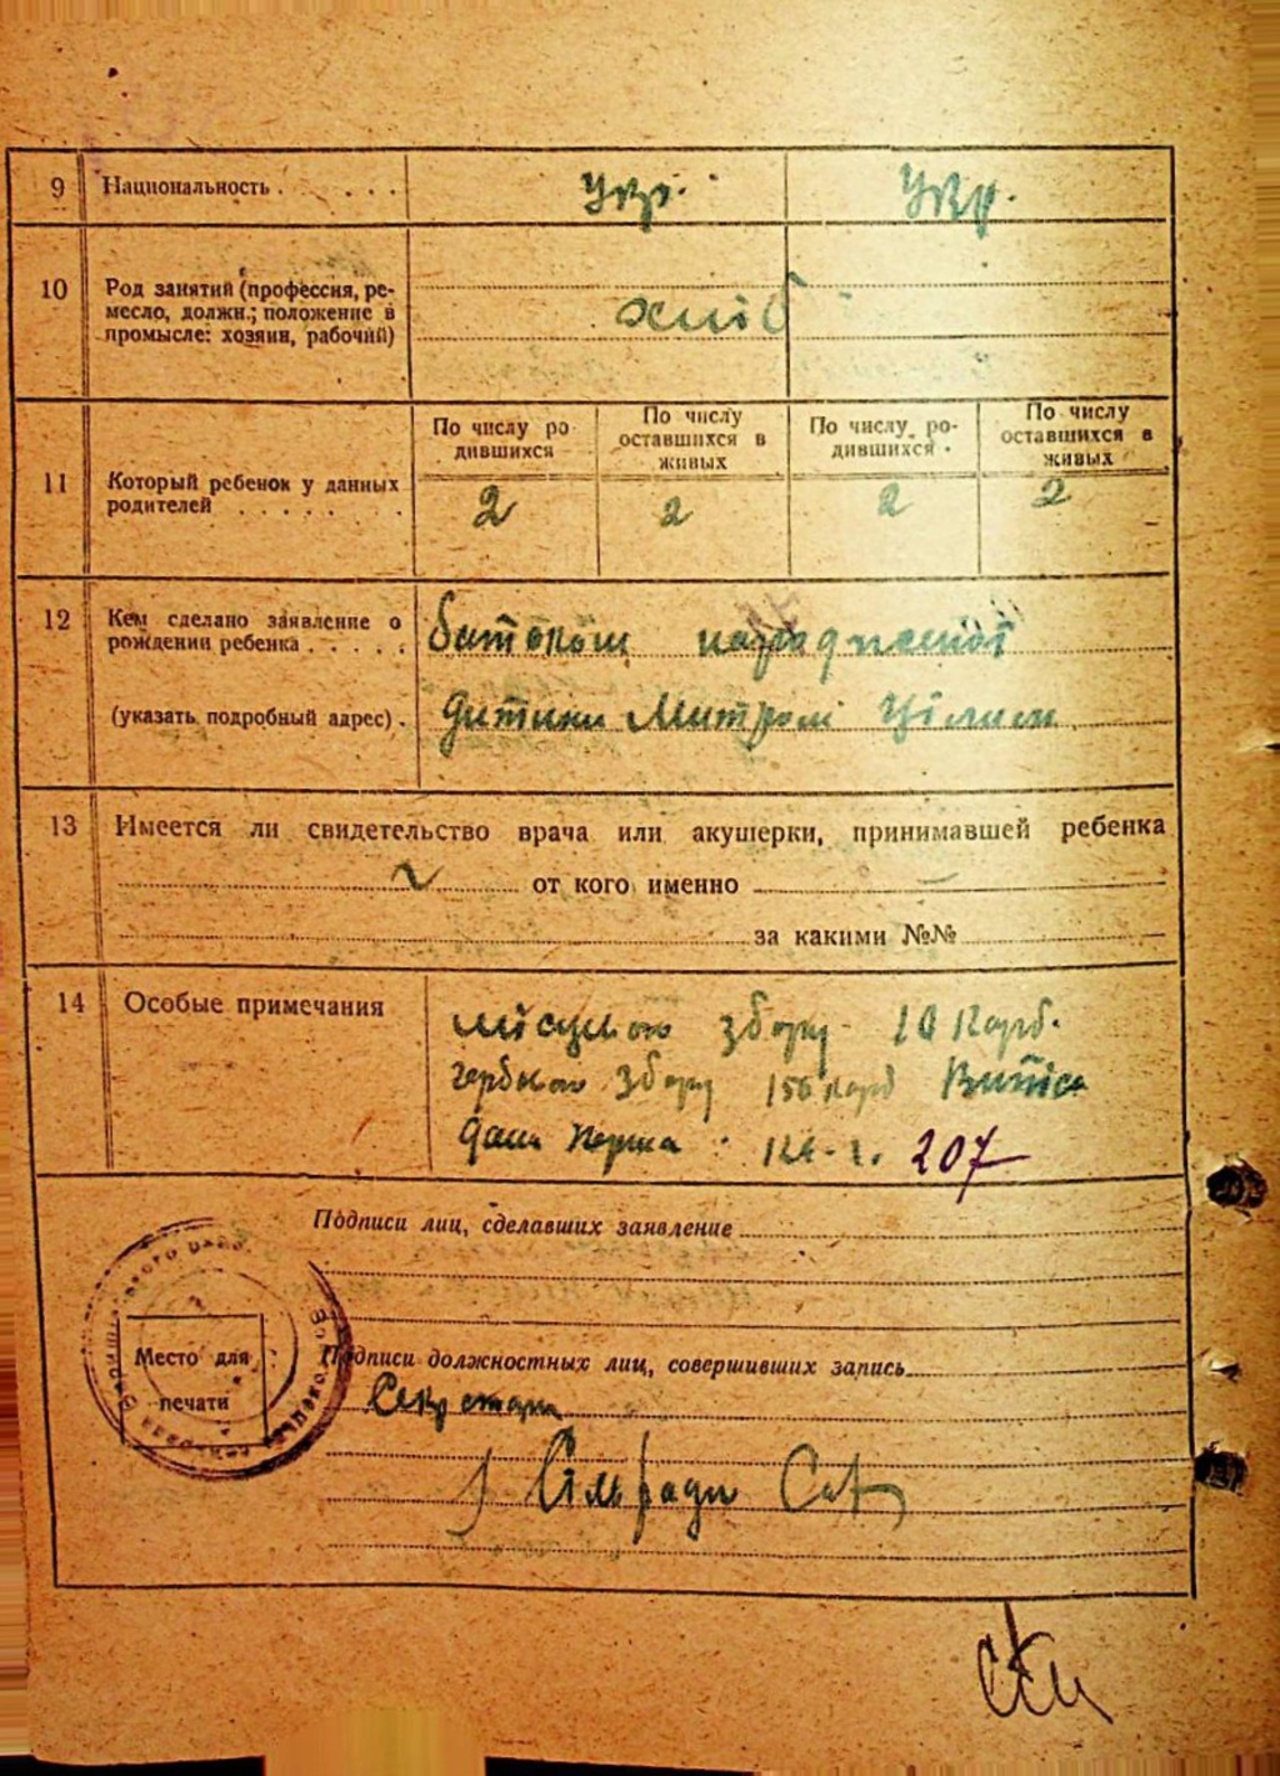 9 Национальность . . . . . Укр. Укр.
10 Род занятий (профессия, ре-
месло, должн.; положение в
промысле: хозяин, рабочий)
хліб
По числу ро-
дившихся
По числу
оставшихся в
живых
По числу ро-
дившихся
По числу
оставшихся в
живых
11 Который ребенок у данных
родителей . . . . . .
2 2 2 2
12 Кем сделано заявление о
рождении ребенка . . . . .
(указать подробный адрес) .
батьком народженої
дитини
13 Имеется ли свидетельство врача или акушерки, принимавшей ребенка
от кого именно
за какими №№
14 Особые примечания
місцевого збору 10 Карб.
гербового збору 150 карб Витяг
дана перша 207
Подписи лиц, сделавших заявление
Место для
печати
Подписи должностных лиц, совершивших запись
Секретарь